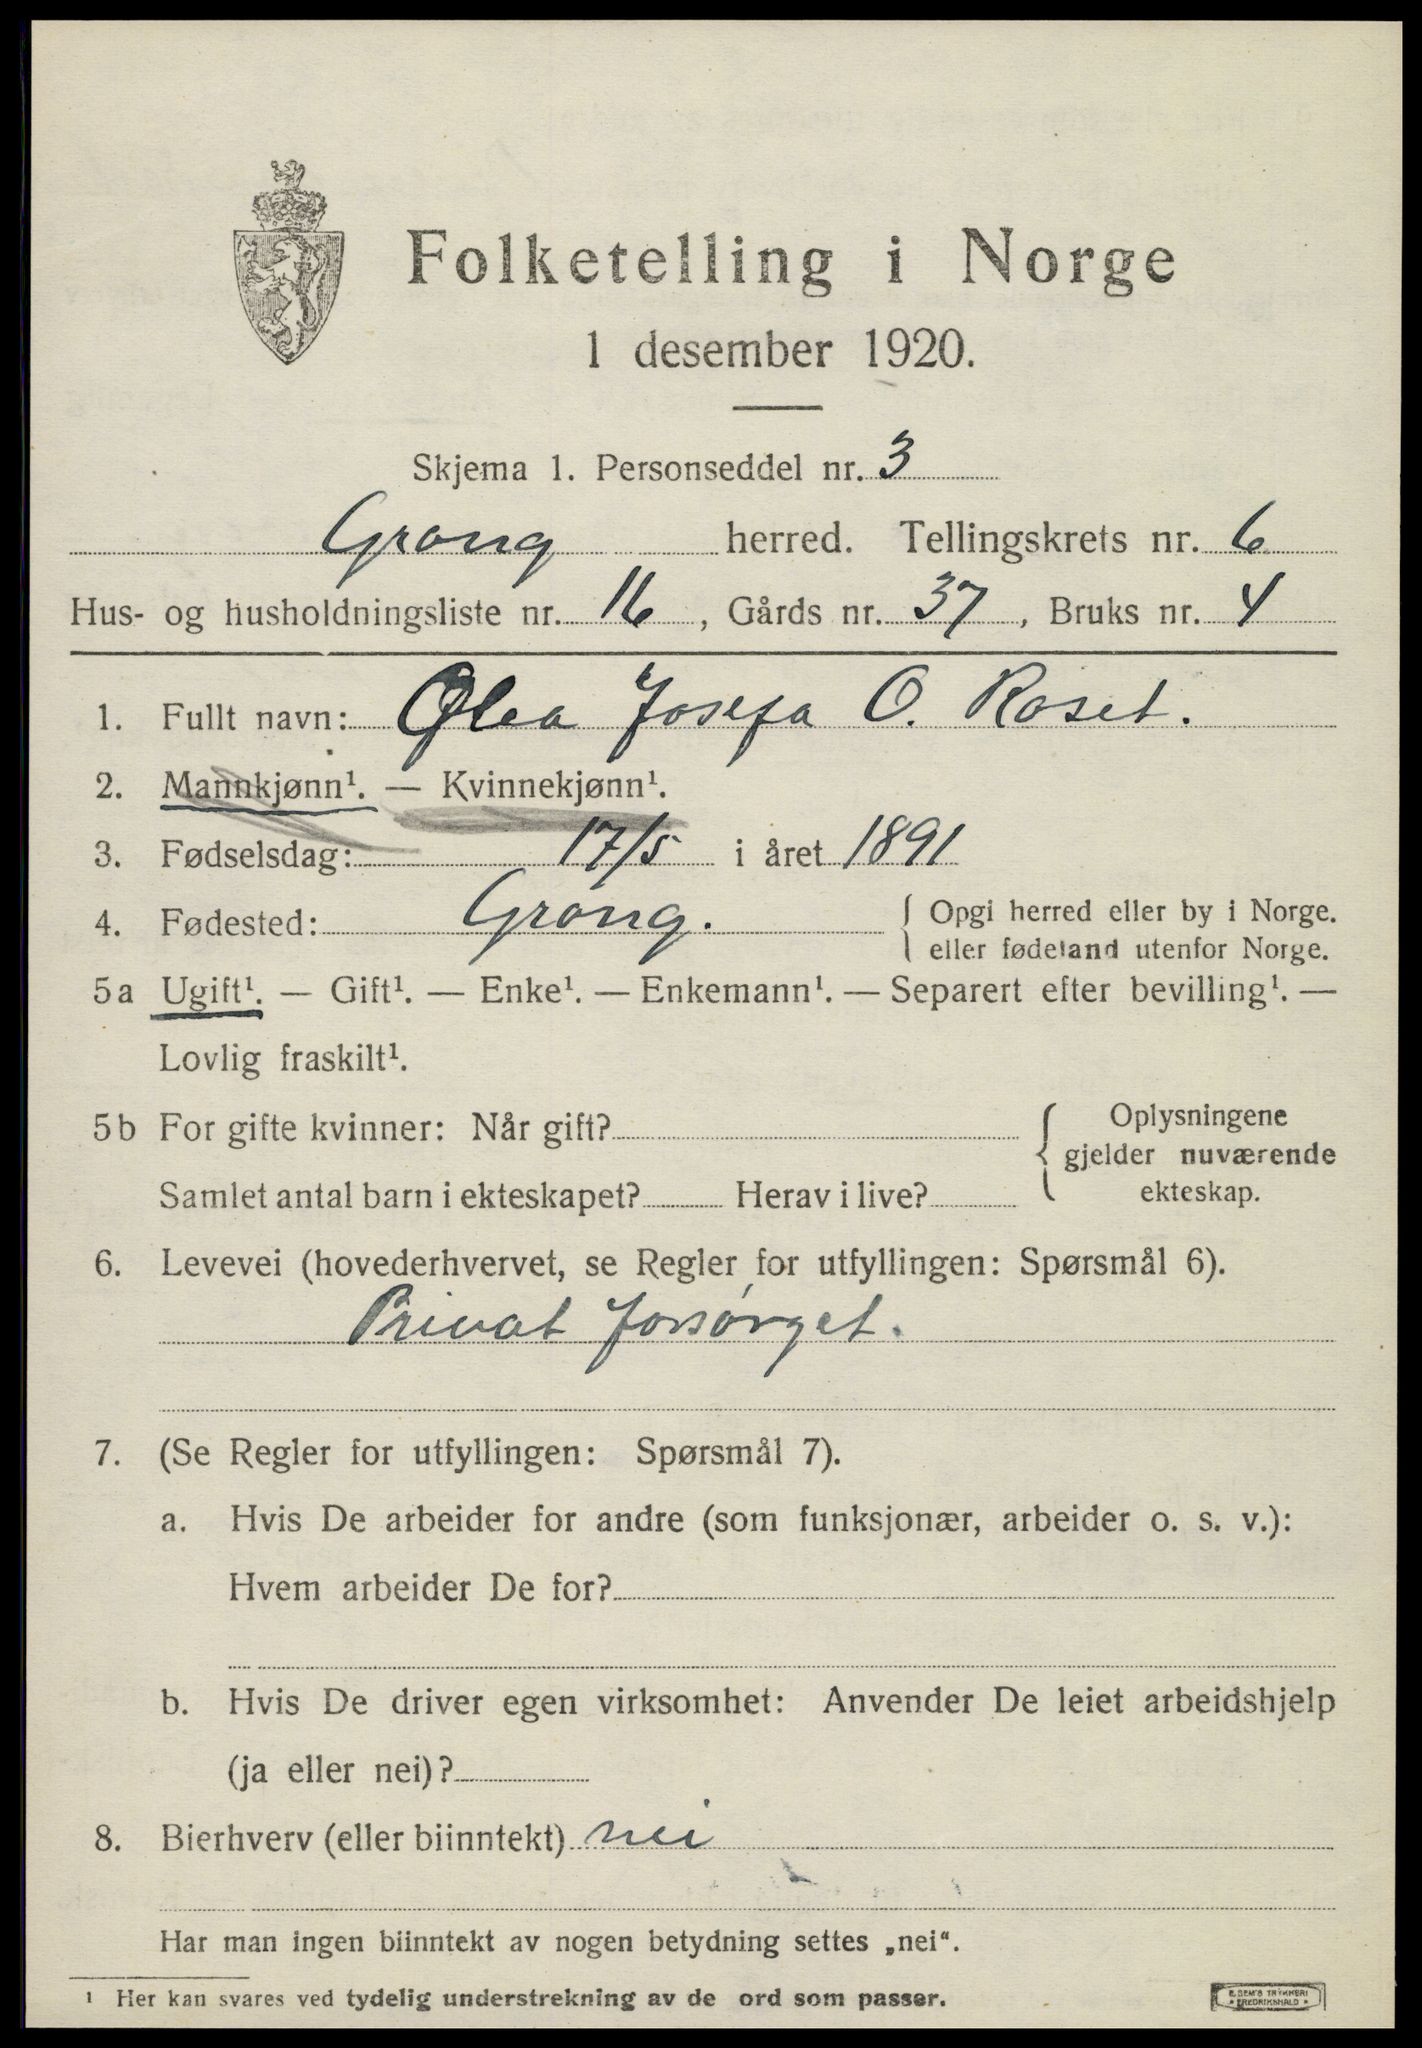 Folketelling i Norge
1 desember 1920.
Skjema 1. Personseddel nr. 3
Grong herred. Tellingskrets nr. 6
Hus- og husholdningsliste nr. 16, Gårds nr. 37, Bruks nr. 4
1. Fullt navn: Olea Josefa O. Roset.
2. Mannkjønn¹. — Kvinnekjønn¹.
3. Fødselsdag: 17/5 i året 1891
4. Fødested: Grong. { Opgi herred eller by i Norge.
eller fødeland utenfor Norge.
5a Ugift¹. — Gift¹. — Enke¹. — Enkemann¹. — Separert efter bevilling¹. —
Lovlig fraskilt¹.
5b For gifte kvinner: Når gift? { Oplysningene
gjelder nuværende
Samlet antal barn i ekteskapet? Herav i live? ekteskap.
6. Levevei (hovederhvervet, se Regler for utfyllingen: Spørsmål 6).
Privat forsørget.
7. (Se Regler for utfyllingen: Spørsmål 7).
a. Hvis De arbeider for andre (som funksjonær, arbeider o. s. v.):
Hvem arbeider De for?
b. Hvis De driver egen virksomhet: Anvender De leiet arbeidshjelp
(ja eller nei)?
8. Bierhverv (eller biinntekt) nei
Har man ingen biinntekt av nogen betydning settes „nei“.
¹ Her kan svares ved tydelig understrekning av de ord som passer.
E. SEM'S TRYKKERI
FREDRIKSHALD